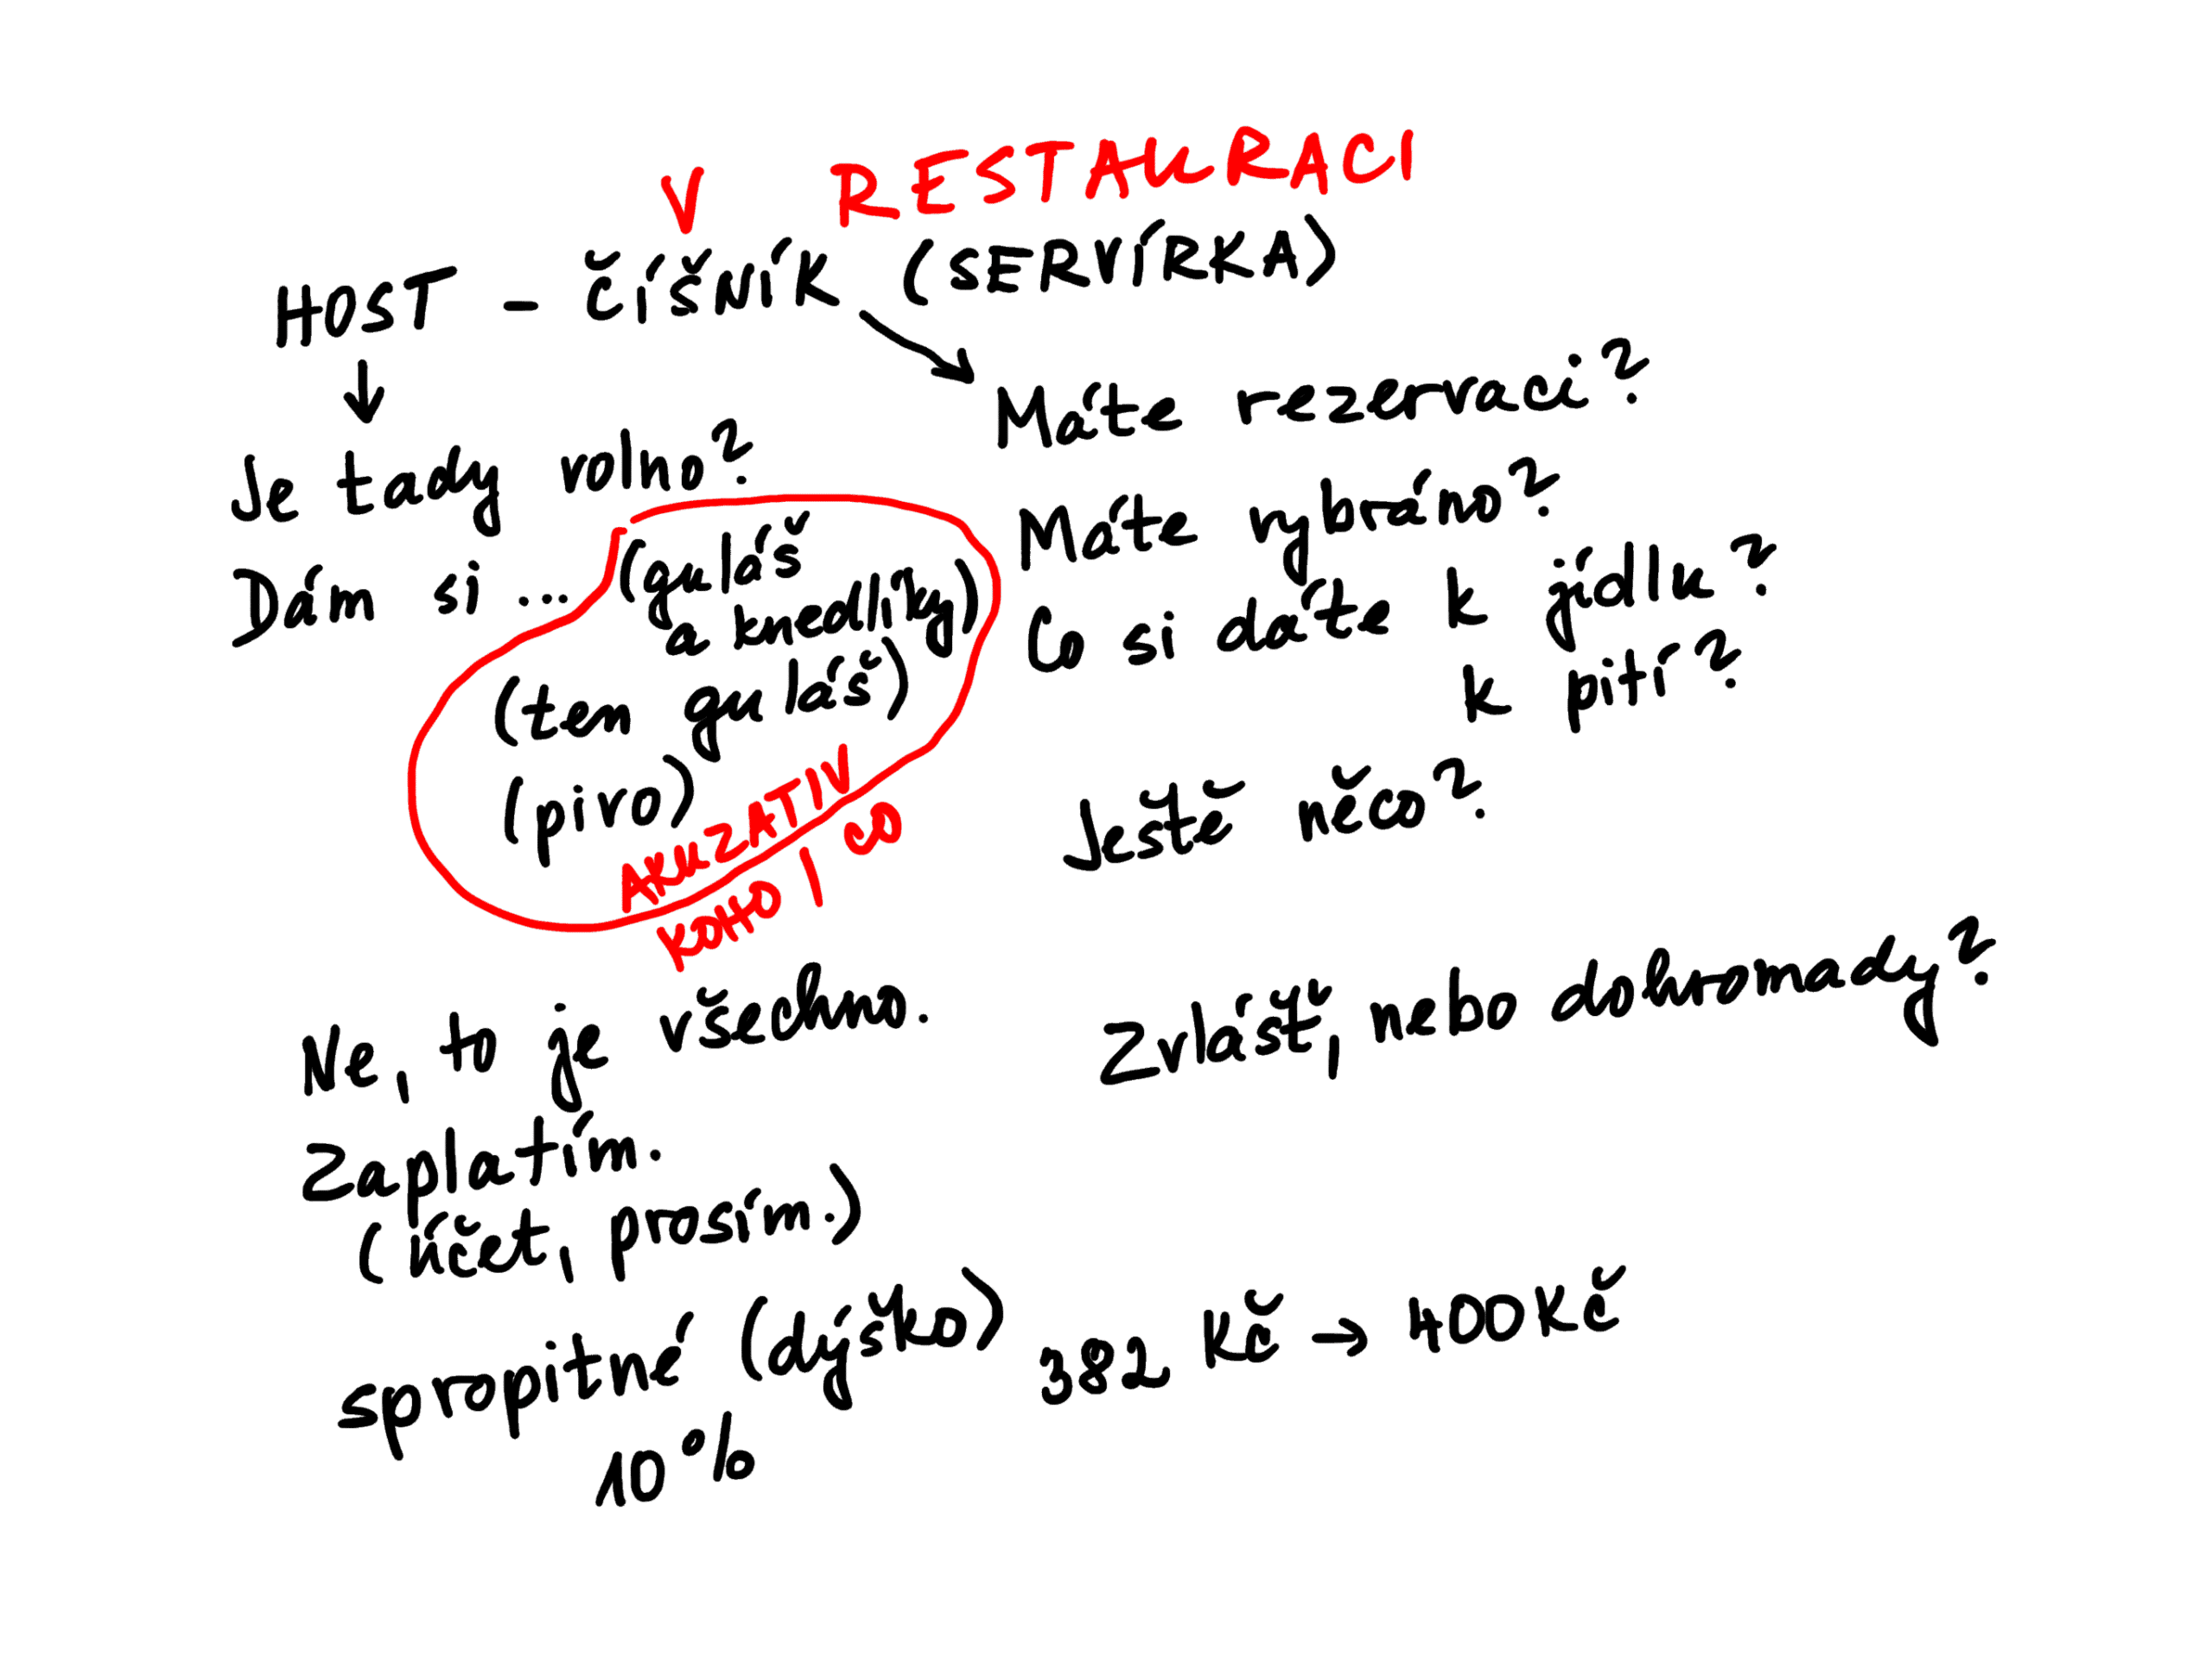 V RESTAURACI
HOST - ČÍŠNÍK (SERVÍRKA)
Je tady volno?
Dám si ... (guláš
a knedlíky)
(ten guláš)
(pivo)
AKUZATIV
KOHO / CO
Ne, to je všechno.
Zaplatím.
(účet, prosím.)
spropitné (dýško)
10%
Máte rezervaci?
Máte vybráno?
Co si dáte k jídlu?
k pití?
Ještě něco?
Zvlášť, nebo dohromady?
382 Kč → 400 Kč